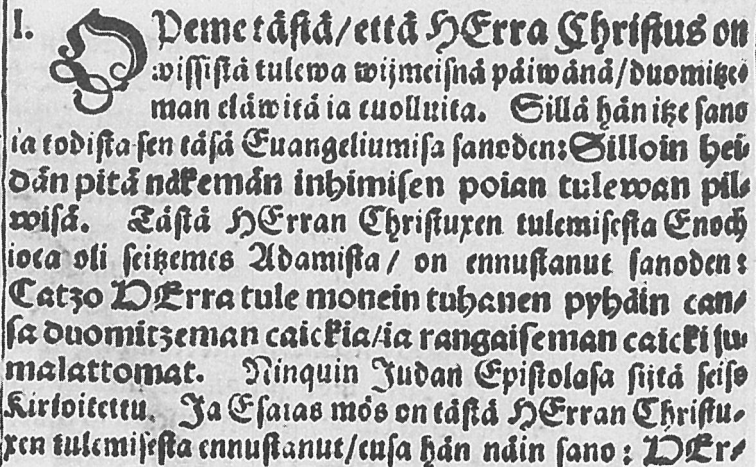 I. OPeme tästä/että HErra Christus on
wissistä tulewa wijmeisnä päiwänä/duomitze-
man eläwitä ia cuolluita. Sillä hän itze sano
ia todista sen täsä Euangeliumisa sanoden: Silloin hei-
dän pitä näkemän inhimisen poian tulewan pil-
wisä. Tästä HErran Christuxen tulemisesta Enoch
ioca oli seitzemes Adamista/ on ennustanut sanoden:
Catzo HErra tule monein tuhanen pyhäin can-
sa duomitzeman caickia/ia rangaiseman caicki ju-
malattomat. Ninquin Judan Epistolasa sijtä seiso
Kirioitettu. Ja Esaias mös on tästä HErran Christu-
xen tulemisesta ennustanut/cusa hän näin sano: HEr-